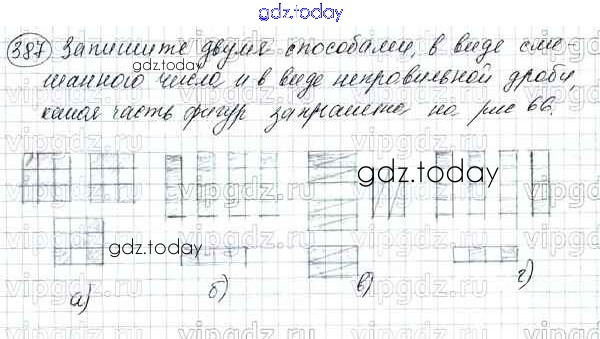 gdz.today
387 Запишите двумя способами, в виде сме-
gdz.today
шанного числа и в виде неправильной дроби,
какая часть фигур закрашена на рис 66.
vipgdz.ru vipgdz.ru vipgdz.ru
gdz.today
vipgdz.ru vipgdz.ru vipgdz.ru
gdz.today
а) б) в) г)
vipgdz.ru vipgdz.ru vipgdz.ru